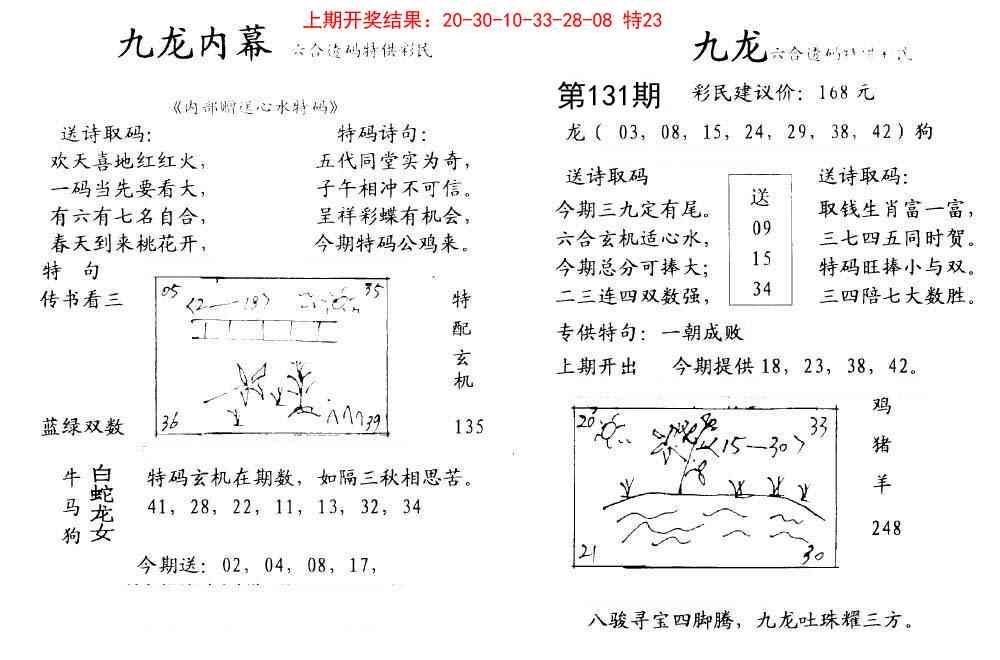 上期开奖结果：20-30-10-33-28-08 特23
九龙内幕 六合透码特供彩民
《内部赠送心水特码》
送诗取码：
欢天喜地红红火，
一码当先要看大，
有六有七名自合，
春天到来桃花开，
特码诗句：
五代同堂实为奇，
子午相冲不可信。
呈祥彩蝶有机会，
今期特码公鸡来。
特 句
传书看三
蓝绿双数
05
35
〈2—18〉
36
39
特
配
玄
机
135
牛
马
狗
白蛇龙女
特码玄机在期数，如隔三秋相思苦。
41，28，22，11，13，32，34
今期送：02，04，08，17，
九龙 六合透码特供
第131期 彩民建议价：168元
龙（ 03，08，15，24，29，38，42）狗
送诗取码
今期三九定有尾。
六合玄机适心水，
今期总分可捧大；
二三连四双数强，
送
09
15
34
送诗取码：
取钱生肖富一富，
三七四五同时贺。
特码旺捧小与双。
三四陪七大数胜。
专供特句：一朝成败
上期开出 今期提供18，23，38，42。
20
33
〈15—30〉
21
30
鸡
猪
羊
248
八骏寻宝四脚腾，九龙吐珠耀三方。